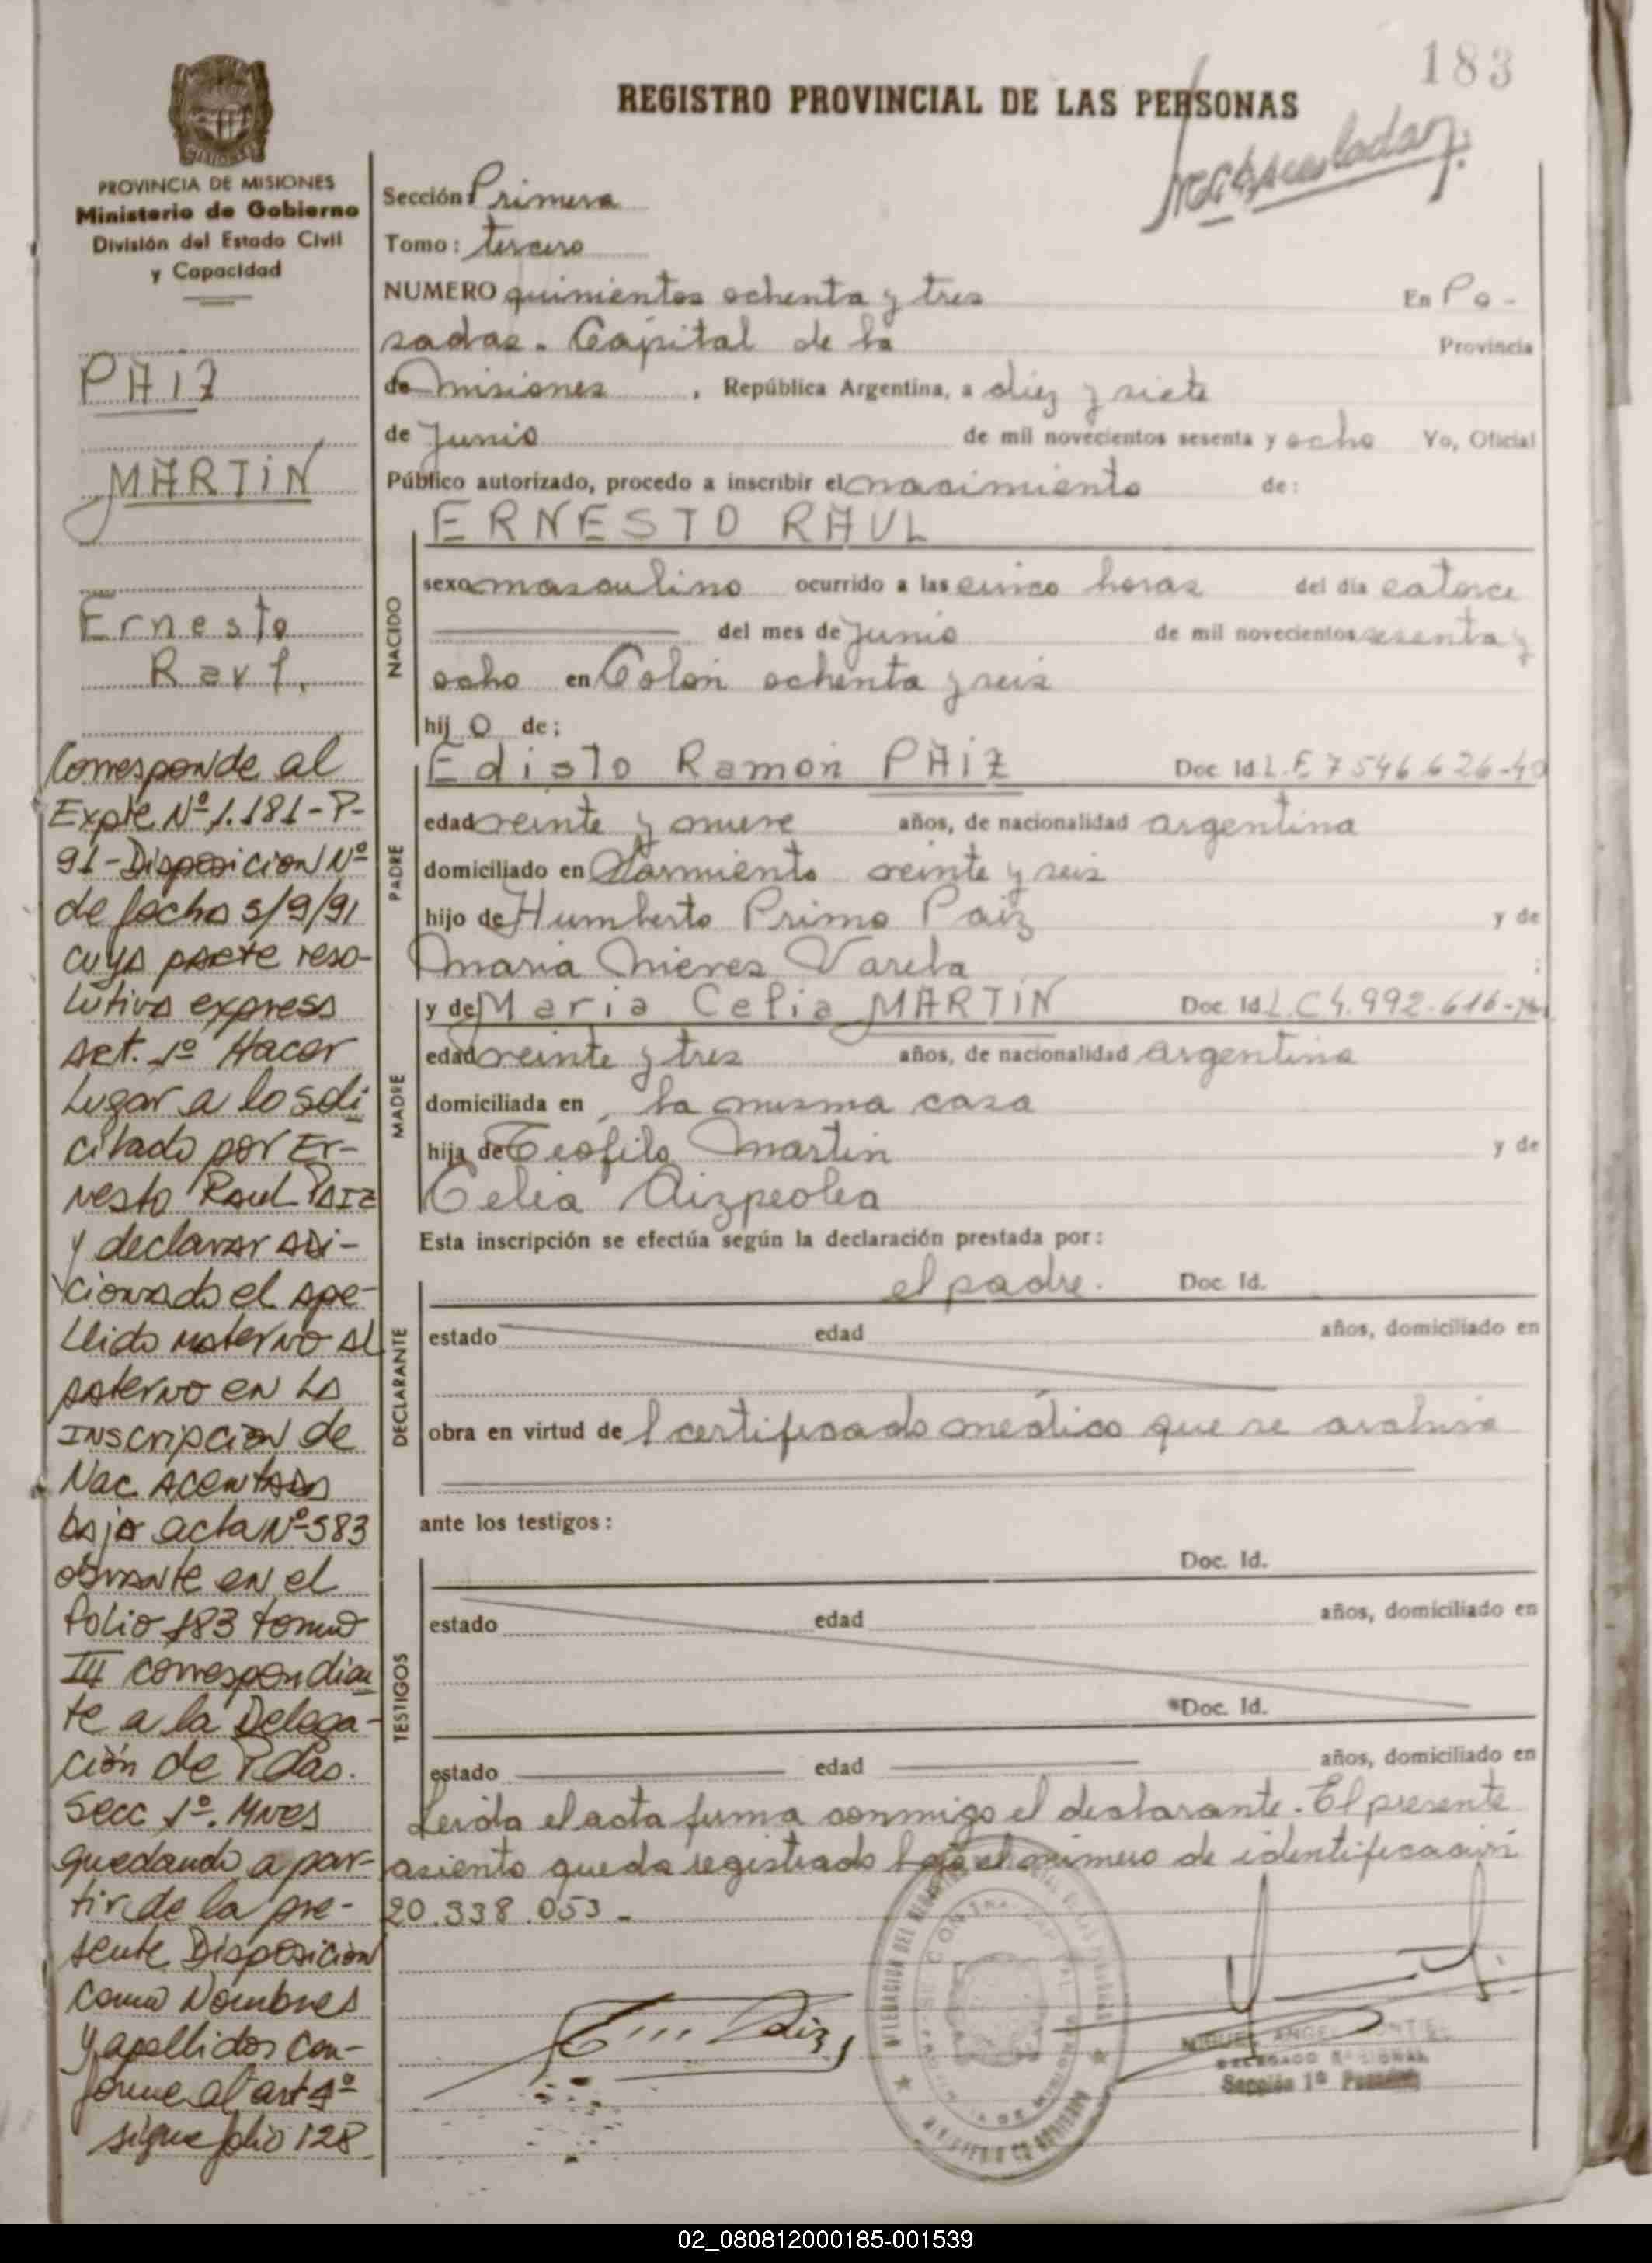 183
REGISTRO PROVINCIAL DE LAS PERSONAS
PROVINCIA DE MISIONES
Ministerio de Gobierno
División del Estado Civil
y Capacidad
PAIZ
MARTIN
Ernesto
Raul.
Corresponde al
Expte Nº 1.181-P-
91-Disposicion Nº
de fecha 5/9/91
cuya parte reso-
lutiva expresa
Art. 1º Hacer
Lugar a lo soli
citado por Er-
nesto Raul PAIZ
y declarar adi-
cionado el ape-
llido materno al
paterno en la
Inscripcion de
Nac. acentada
bajo acta Nº 583
obrante en el
folio 183 tomo
III correspondien
te a la Delega-
ción de Pdas.
Secc 1º. Mnes
quedando a par-
tir de la pre-
sente Disposicion
como Nombres
y apellidos con-
forme al art 1º
sigue folio 128
Sección Primera
Tomo: tercero
NUMERO quinientos ochenta y tres En Po-
sadas. Capital de la Provincia
de misiones, República Argentina, a diez y siete
de Junio de mil novecientos sesenta y ocho Yo, Oficial
Público autorizado, procedo a inscribir el nacimiento de:
NACIDO
ERNESTO RAUL
sexo masculino ocurrido a las cinco horas del día catorce
del mes de Junio de mil novecientos sesenta y
ocho en Colón ochenta y seis
hij o de;
PADRE
Edisto Ramón PAIZ Doc Id. L.E 7546626-40
edad veinte y nueve años, de nacionalidad argentina
domiciliado en Sarmiento veinte y seis
hijo de Humberto Primo Paiz y de
Maria Nieves Varela ;
MADRE
y de Maria Celia MARTIN Doc. Id. L.C 4.992.616
edad veinte y tres años, de nacionalidad Argentina
domiciliada en, la misma casa
hija de Teofilo Martin y de
Celia Aizpeolea
Esta inscripción se efectúa según la declaración prestada por:
DECLARANTE
el padre. Doc. Id.
estado edad años, domiciliado en
obra en virtud de l certificado médico que se archiva
ante los testigos:
TESTIGOS
Doc. Id.
estado edad años, domiciliado en
Doc. Id.
estado edad años, domiciliado en
Leida el acta firma conmigo el declarante. El presente
asiento queda registrado bajo el número de identificación
20.338.053-
Paiz
MIGUEL ANGEL MONTIEL
DELEGADO REGIONAL
Sección 1ª Posadas
02_080812000185-001539